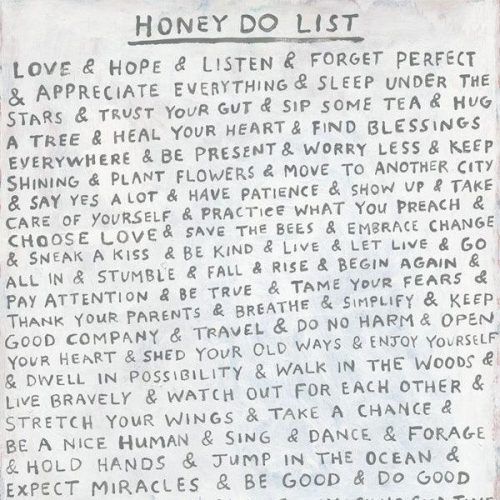 HONEY DO LIST
LOVE & HOPE & LISTEN & FORGET PERFECT
& APPRECIATE EVERYTHING & SLEEP UNDER THE
STARS & TRUST YOUR GUT & SIP SOME TEA & HUG
A TREE & HEAL YOUR HEART & FIND BLESSINGS
EVERYWHERE & BE PRESENT & WORRY LESS & KEEP
SHINING & PLANT FLOWERS & MOVE TO ANOTHER CITY
& SAY YES A LOT & HAVE PATIENCE & SHOW UP & TAKE
CARE OF YOURSELF & PRACTICE WHAT YOU PREACH &
CHOOSE LOVE & SAVE THE BEES & EMBRACE CHANGE
& SNEAK A KISS & BE KIND & LIVE & LET LIVE & GO
ALL IN & STUMBLE & FALL & RISE & BEGIN AGAIN &
PAY ATTENTION & BE TRUE & TAME YOUR FEARS &
THANK YOUR PARENTS & BREATHE & SIMPLIFY & KEEP
GOOD COMPANY & TRAVEL & DO NO HARM & OPEN
YOUR HEART & SHED YOUR OLD WAYS & ENJOY YOURSELF
& DWELL IN POSSIBILITY & WALK IN THE WOODS &
LIVE BRAVELY & WATCH OUT FOR EACH OTHER &
STRETCH YOUR WINGS & TAKE A CHANCE &
BE A NICE HUMAN & SING & DANCE & FORAGE
& HOLD HANDS & JUMP IN THE OCEAN &
EXPECT MIRACLES & BE GOOD & DO GOOD